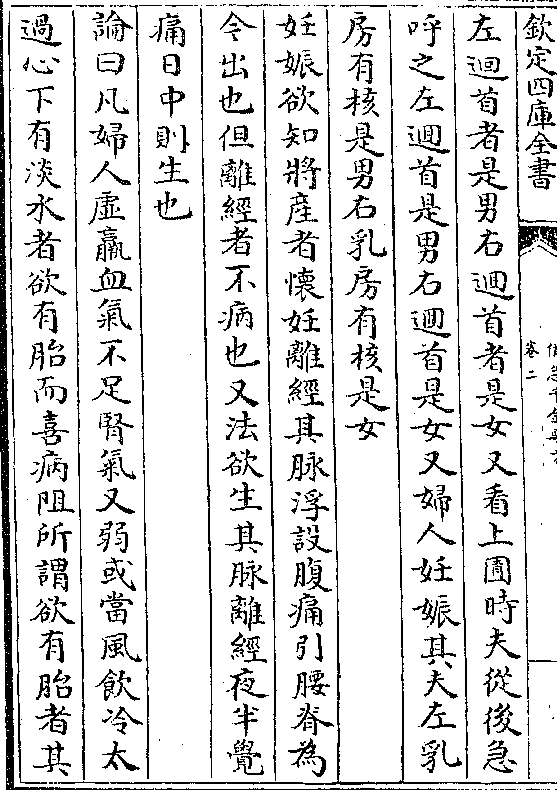 欽定四庫全書
卷二
左迴首者是男右迴首者是女又看上圊時夫從後急
呼之左迴首是男右迴首是女又婦人妊娠其夫左乳
房有核是男右乳房有核是女
妊娠欲知將産者懷妊離經其脉浮設腹痛引腰脊為
令出也但離經者不病也又法欲生其脉離經夜半覺
痛日中則生也
論曰凡婦人虛羸血氣不足腎氣又弱或當風飲冷太
過心下有淡水者欲有胎而喜病阻所謂欲有胎者其